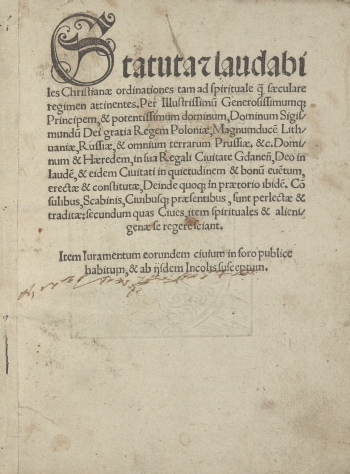 Statuta ⁊ laudabi
les Christianæ ordinationes tam ad spirituale q̃ sæculare
regimen attinentes. Per Illustrissimũ Generosissimumq;
Principem, & potentissimum dominum, Dominum Sigil
mundũ Dei gratia Regem Poloniæ, Magnumducẽ Lith
uaniæ, Russiæ, & omnium terrarum Prussiæ, &c. Domi
num & Hæredem, in sua Regali Ciuitate Gdaneñ, Deo in
laudẽ, & eidem Ciuitati in quietudinem & bonũ euẽtum,
erectæ & constitutæ, Deinde quoq; in prætorio ibidẽ. Cõ
sulibus, Scabinis, Ciuibusq; præsentibus, sunt perlectæ &
traditæ: secundum quas Ciues, item spirituales & alieni-
genæ se regere sciant.
Item Iuramentum eorundem ciuium in foro publice
habitum, & ab ijsdem Incolis susceptum.